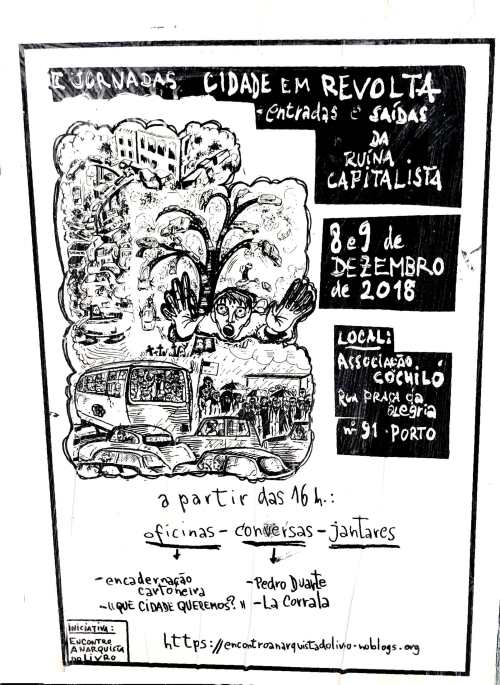 II JORNADAS CIDADE EM REVOLTA
- entradas e SAÍDAS
DA
RUÍNA
CAPITALISTA
8 e 9 de
DEZEMBRO
de 2018
LOCAL:
ASSOCIAÇÃO
COCHILÓ
RUA PRAÇA da
alegria
nº 91 · PORTO
a partir das 16 h.:
oficinas - conversas - jantares
- encadernação
cartoneira
- "QUE CIDADE QUEREMOS?"
- Pedro Duarte
- La Corrala
INICIATIVA:
ENCONTRO
ANARQUISTA
DO LIVRO
https://encontroanarquistadolivro.noblogs.org